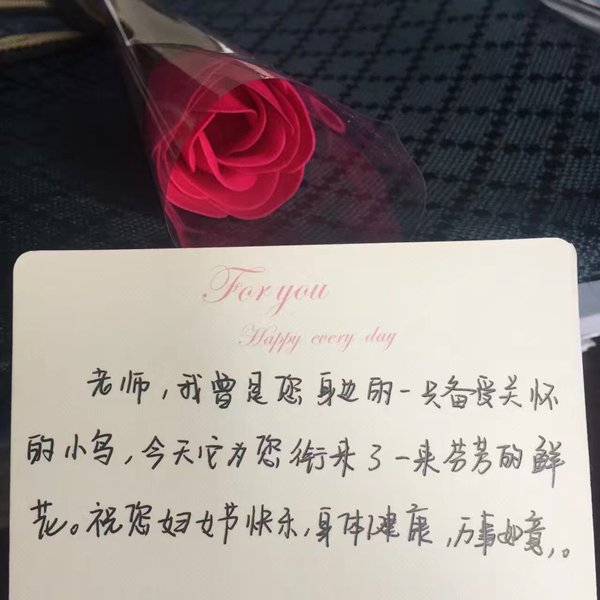 For you
Happy every day
老师，我曾是您身边的一只备受关怀
的小鸟，今天它为您衔来了一束芬芳的鲜
花。祝您妇女节快乐，身体健康，万事如意，。